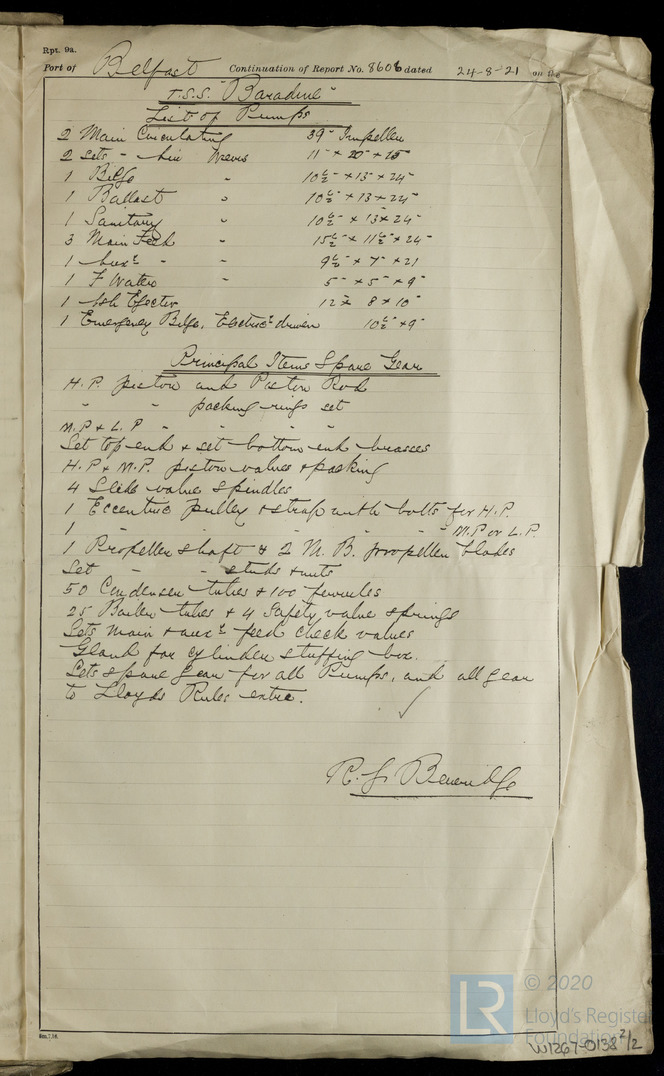 Rpt. 9a.
Port of Belfast Continuation of Report No. 8606 dated 24-8-21 on the
T.S.S. "Baradine"
List of Pumps
2 Main Circulating 39" Impeller
2 Sets - Air 11" × 20" × 15"
1 Bilge " 10½" × 13" × 24"
1 Ballast " 10½" × 13 × 24"
1 Sanitary " 10½" × 13 × 24"
3 Main Feed " 15½" × 11½" × 24"
1 Auxr " " 9½" × 7" × 21
1 F Water " 5" × 5" × 9"
1 Ash Ejector 12" × 8 × 10"
1 Emergency Bilge, Electric driven 10½" × 9"
Principal Items Spare Gear
H.P. piston and Piston Rod
" " packing rings set
M.P & L.P " " " "
Set top end & set bottom end brasses
H.P & M.P. piston valves & packing
4 Slide valve spindles
1 Eccentric pulley & strap with bolts for H.P.
1 " " " " " " M.P or L.P.
1 Propeller shaft & 2 M. B. propeller blades
Set " " studs & nuts
50 Condenser tubes & 100 ferrules
25 Boiler tubes & 4 Safety valve springs
Sets main & auxr feed check valves
Gland for cylinder stuffing box.
Sets spare gear for all Pumps, and all gear
to Lloyds Rules extra. ✓
R. J. Beveridge
6m.7.16.
LR © 2020
Lloyd's Register
Foundation
W1267-0138 2/2